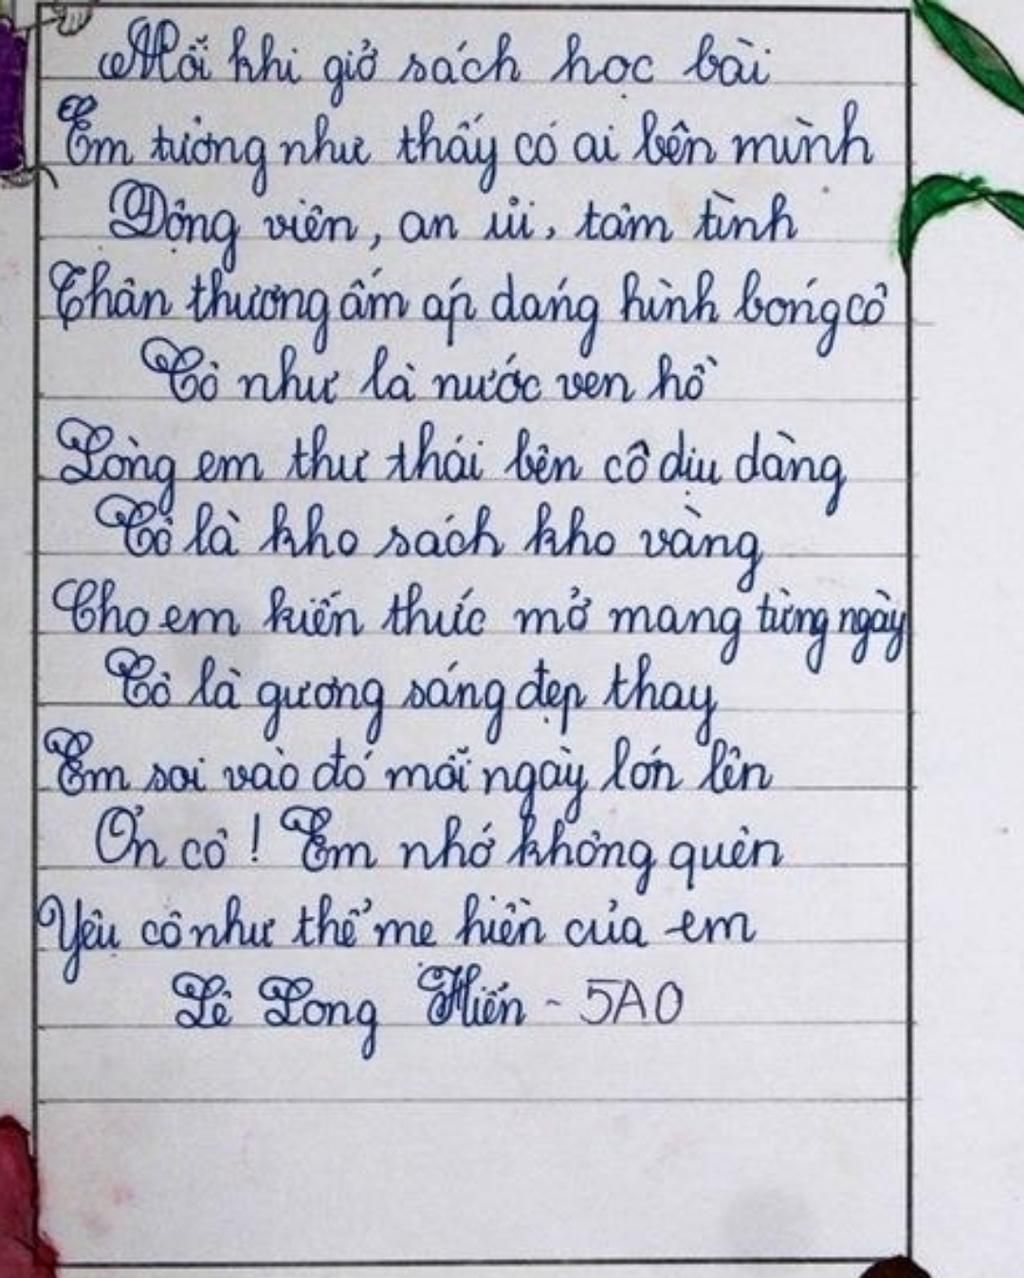 Mỗi khi giở sách học bài
Em tưởng như thấy có ai bên mình
Động viên, an ủi, tâm tình
Thân thương ấm áp dáng hình bóng cô
Cô như là nước ven hồ
Lòng em thư thái bên cô dịu dàng
Cô là kho sách kho vàng
Cho em kiến thức mở mang từng ngày
Cô là gương sáng đẹp thay
Em soi vào đó mỗi ngày lớn lên
Ơn cô! Em nhớ không quên
Yêu cô như thể mẹ hiền của em
Lê Long Hiến - 5A0